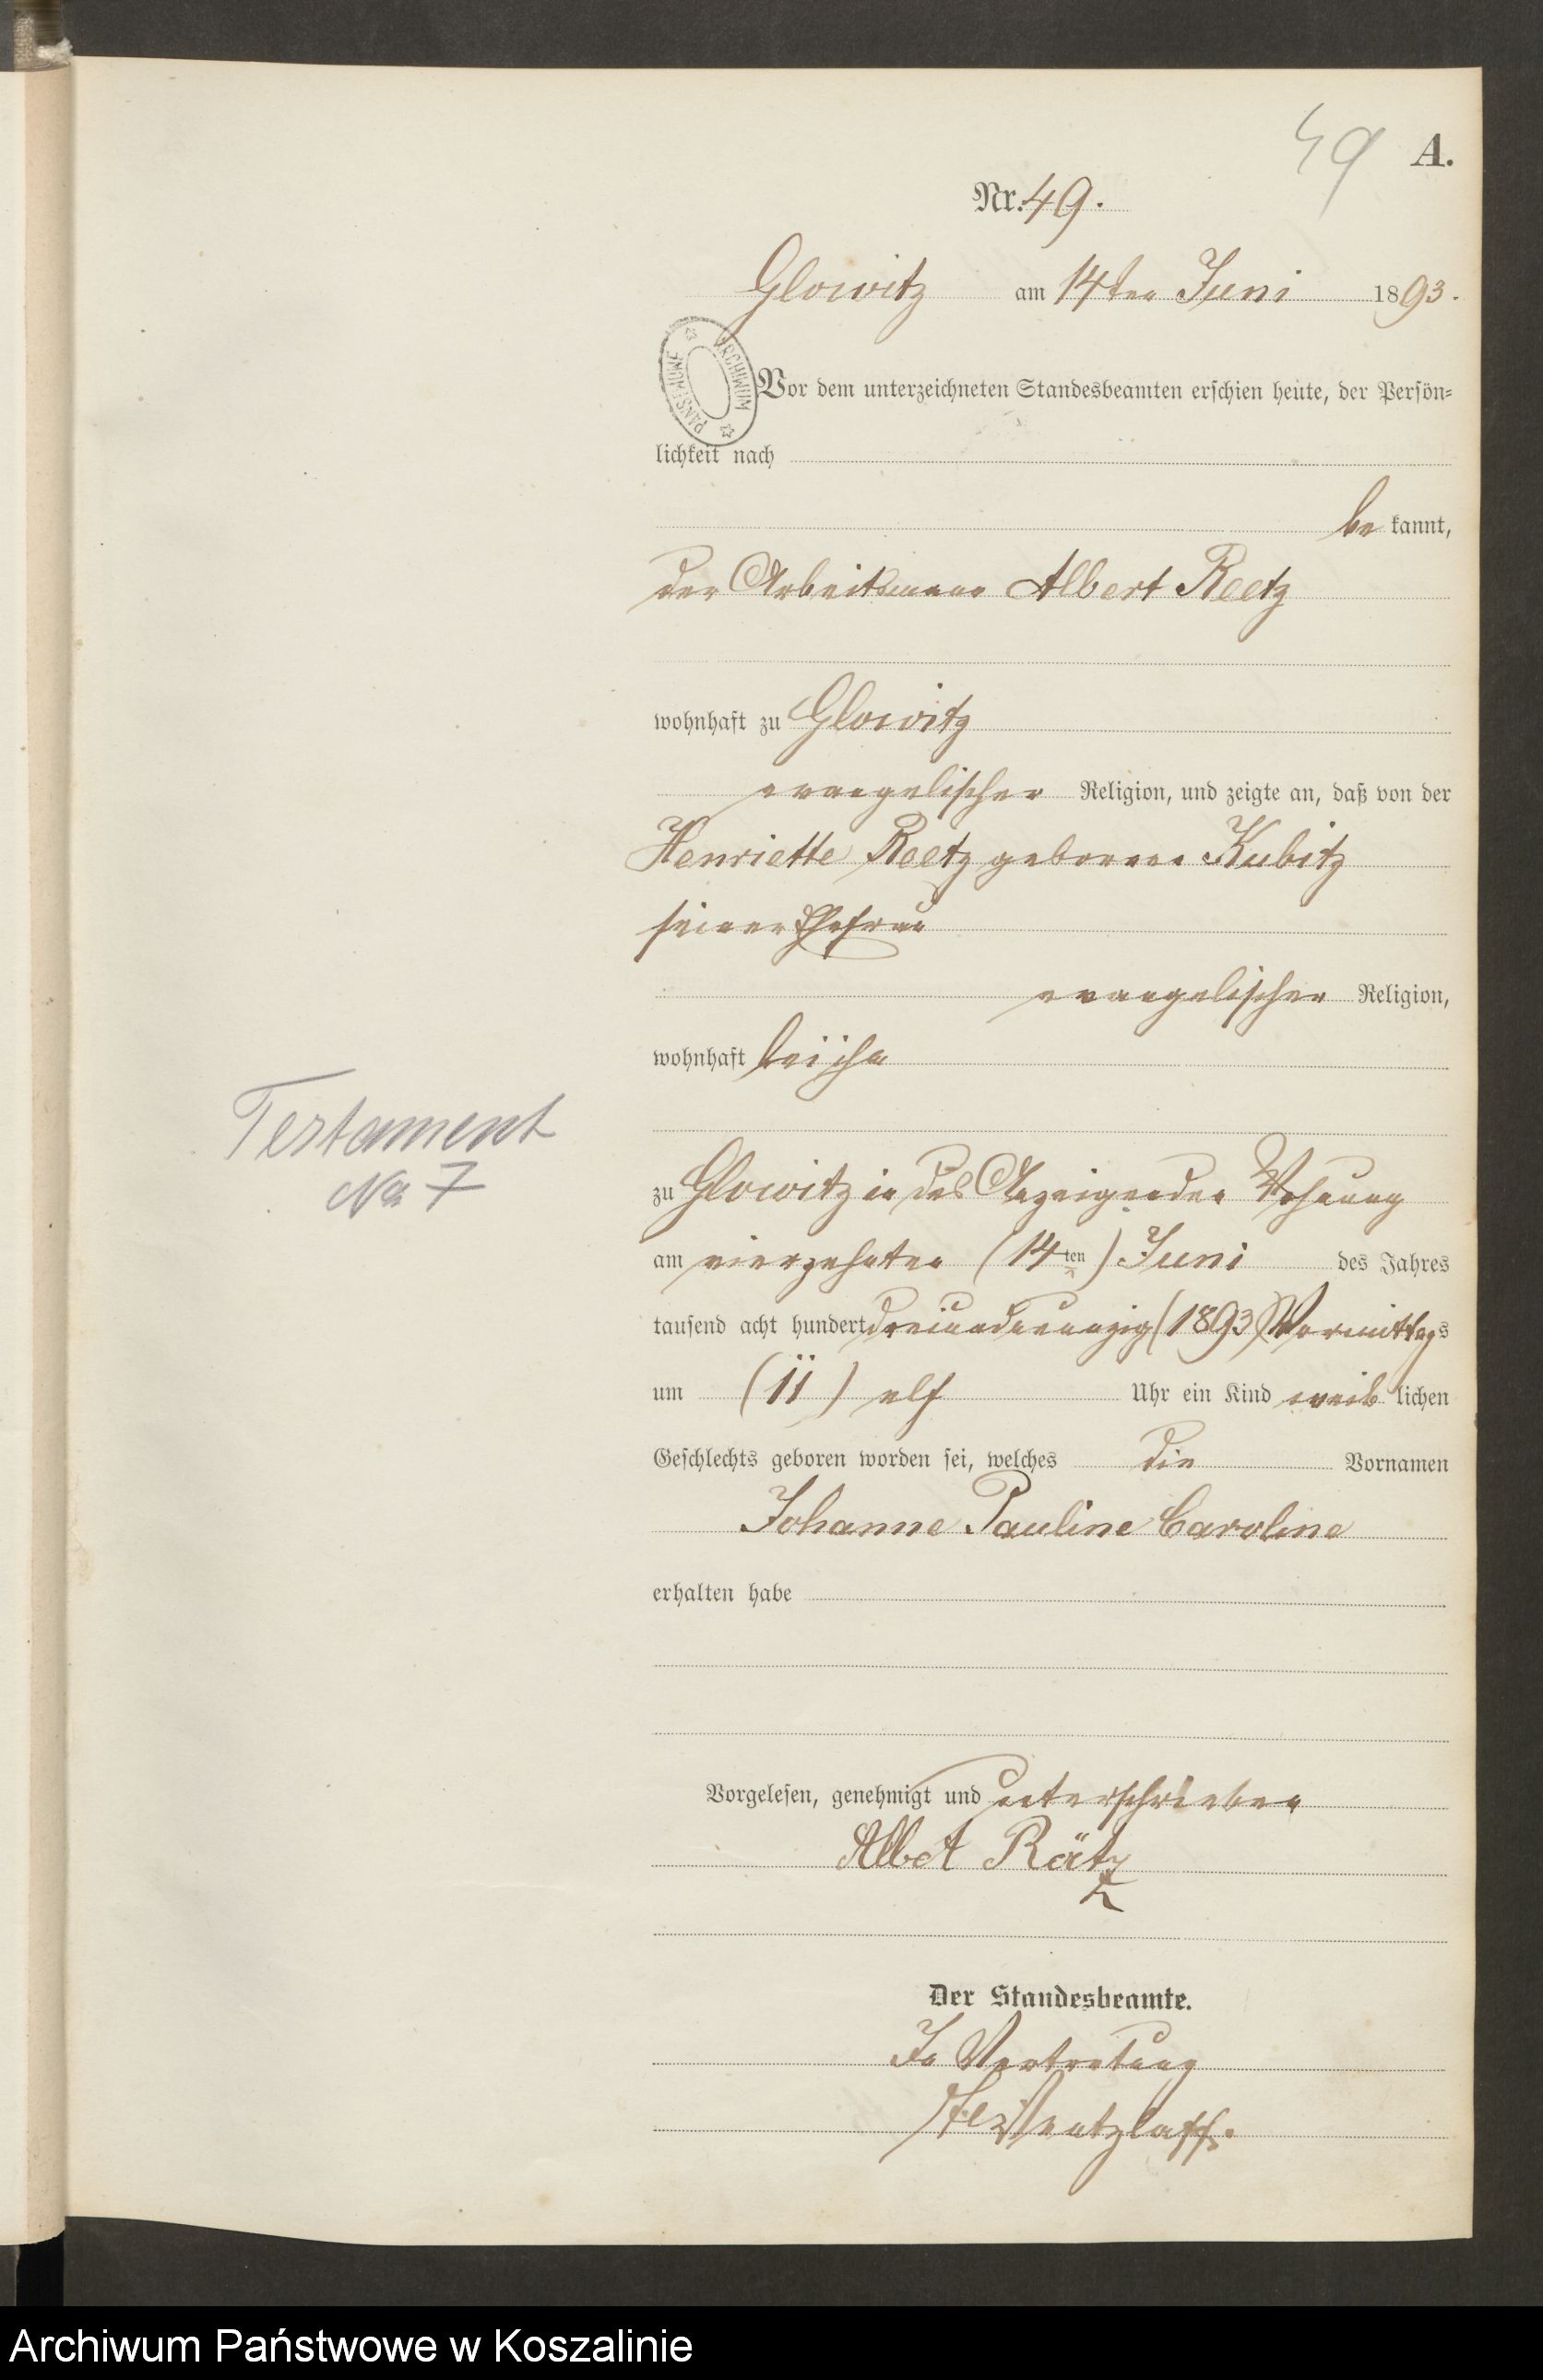 49 A.
Nr. 49.
Glowitz am 14ten Juni 1893.
ARCHIWUM PAŃSTWOWE
Vor dem unterzeichneten Standesbeamten erschien heute, der Persön-
lichkeit nach
be kannt,
der Arbeitsmann Albert Reetz
wohnhaft zu Glowitz
evangelischer Religion, und zeigte an, daß von der
Henriette Reetz geborene Kubitz
seiner Ehefrau
evangelischer Religion,
wohnhaft bei ihm
Testament
No 7
zu Glowitz in des Anzeigenden Wohnung
am vierzehnten (14ten) Juni des Jahres
tausend acht hundert dreiundneunzig (1893) Vormittags
um (11) elf Uhr ein Kind weib lichen
Geschlechts geboren worden sei, welches die Vornamen
Johanne Pauline Caroline
erhalten habe
Vorgelesen, genehmigt und unterschrieben
Albet Rätz
Der Standesbeamte.
In Vertretung
Archiwum Państwowe w Koszalinie